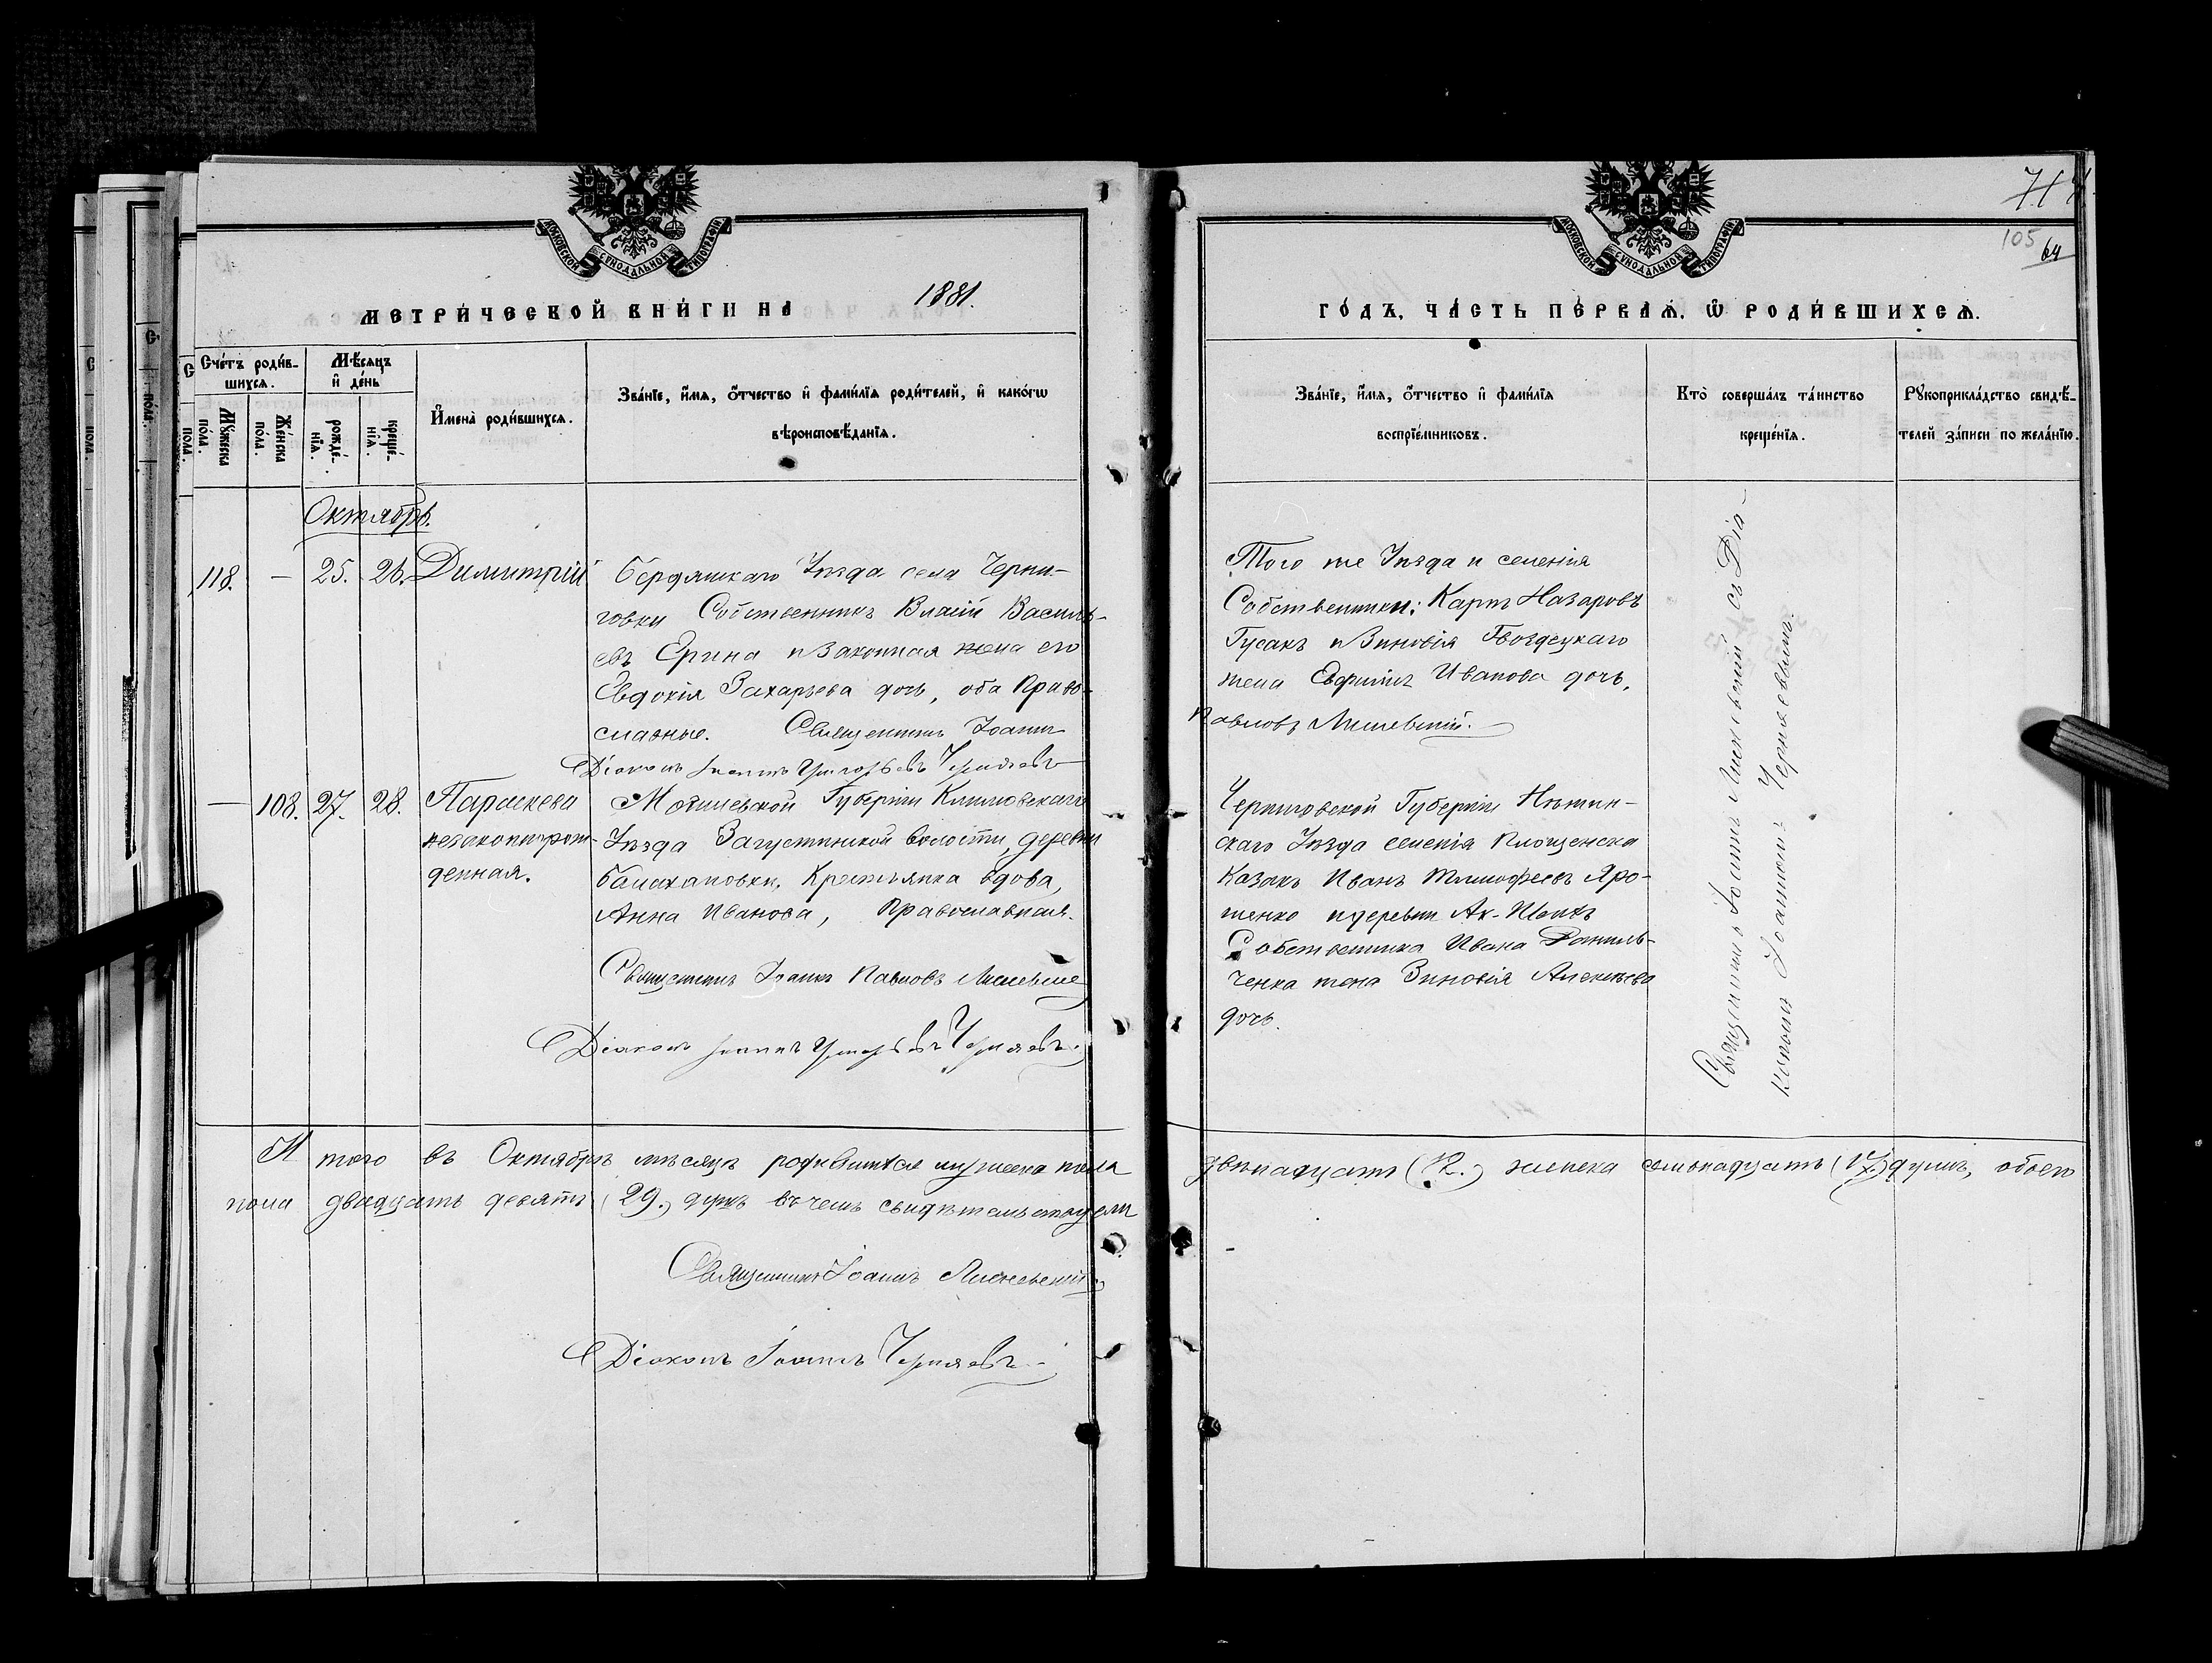 МОСКОВСКОЙ СѴНОДАЛЬНОЙ ТИПОГРАФІИ
МЕТРИЧЕСКОЙ КНИГИ НА 1881.
Счетъ родив-
шихся.
Мѣсяцъ
и день
Мужеска пола.
Женска пола.
рожде-
нія.
креще-
нія.
Имена родившихся.
Званіе, имя, отчество и фамилія родителей, и какогѡ
вѣроисповѣданія.
Октябрь.
118. — 25. 26. Димитрій
Бердянскаго Уѣзда села Черни-
говки Собственникъ Власій Василь-
евъ Ерина и законная жена его
Евдокія Захарьева дочь, оба Право-
славные. Священникъ Іоаннъ
Діаконъ Іоаннъ Григорьевъ Черняевъ
— 108. 27. 28. Параскева
незаконнорож-
денная.
Могилевской Губерніи Климовскаго
Уѣзда Загустинской волости, деревни
Балахановки, Крестьянка вдова,
Анна Иванова, Православная.
Священникъ Іоаннъ Павловъ
Діаконъ Іоаннъ Григорьевъ Черняевъ.
И того въ Октябрѣ мѣсяцѣ родившихся мужеска пола
пола двадцать девять (29.) душъ въ чемъ свидѣтельствуемъ
Священникъ Іоаннъ
Діаконъ Іоаннъ Черняевъ
71
105
64
МОСКОВСКОЙ СѴНОДАЛЬНОЙ ТИПОГРАФІИ
ГОДЪ, ЧАСТЬ ПЕРВАЯ, Ѡ РОДИВШИХСЯ.
Званіе, имя, отчество и фамилія
воспріемниковъ.
Кто совершалъ таинство
крещенія.
Рукоприкладство свидѣ-
телей записи по желанію.
Того же Уѣзда и селенія
Собственники: Карпъ Назаровъ
Гусакъ и Зиновія Гвоздецкаго
жена Иванова дочь.
Павловъ
Черниговской Губерніи Нѣжин-
скаго Уѣзда селенія
Казакъ Иванъ Тимофеевъ Яро-
шенко и деревни
Собственника Ивана Даниль-
ченка жена Зиновія Алексѣева
дочь.
Священникъ Іоаннъ съ Діа-
кономъ Іоанномъ Черняевымъ.
двѣнадцать (12.) женска семьнадцать (17.) душъ, обоего